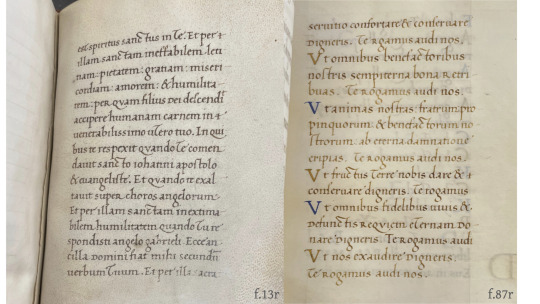 est spiritus sanctus in te. Et per
illam sanctam ineffabilem leti
nam pietatem: gratiam: miseri
cordiam: amorem: & humilita
tem: per quam filius dei descendit
accipere humanam carnem in
venerabilissimo utero tuo. In qui
bus te respexit quando te comen
davit sancto iohanni apostolo
& evangeliste. Et quando te exal
tavit super choros angelorum.
Et per illam sanctam inextima
bilem humilitatem quando tu re
spondisti angelo gabrieli Ecce an
cilla Domini fiat mihi secundū
verbum tuum. Et per illa
f.13r
servitio confortare & conservare
digneris. Te rogamus audi nos.
Ut omnibus benefactoribus
nostris sempiterna bona retri
buas. Te rogamus audi nos.
Ut animas nostras fratrum pro
pinquorum & benefactorum no
strorum ab eterna damnatione
eripias. Te rogamus audi nos.
Ut fructus terre nobis dare &
conservare digneris. Te rogamus
Ut omnibus fidelibus vivis &
defunctis requiem eternam do
nare digneris. Te rogamus audi
Ut nos exaudire digneris.
Te rogamus audi nos.
f.87r